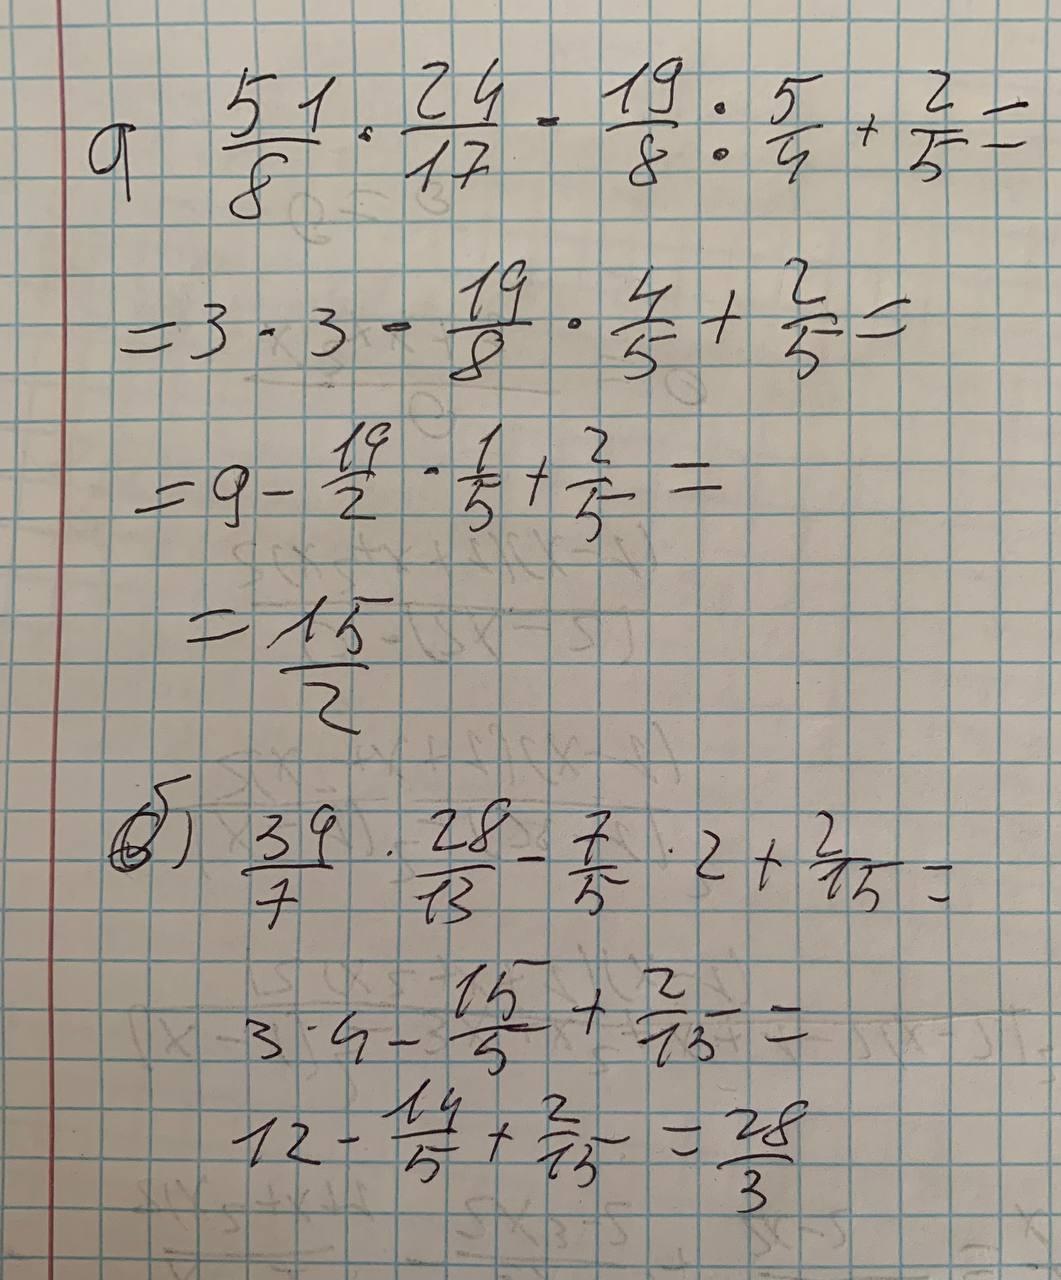 а 51/8 · 24/17 - 19/8 : 5/4 + 2/5 =
= 3 · 3 - 19/8 · 4/5 + 2/5 =
= 9 - 19/2 · 1/5 + 2/5 =
= 15/2
б) 39/7 · 28/13 - 7/5 · 2 + 2/15 =
3 · 4 - 15/5 + 2/15 =
12 - 14/5 + 2/15 = 28/3